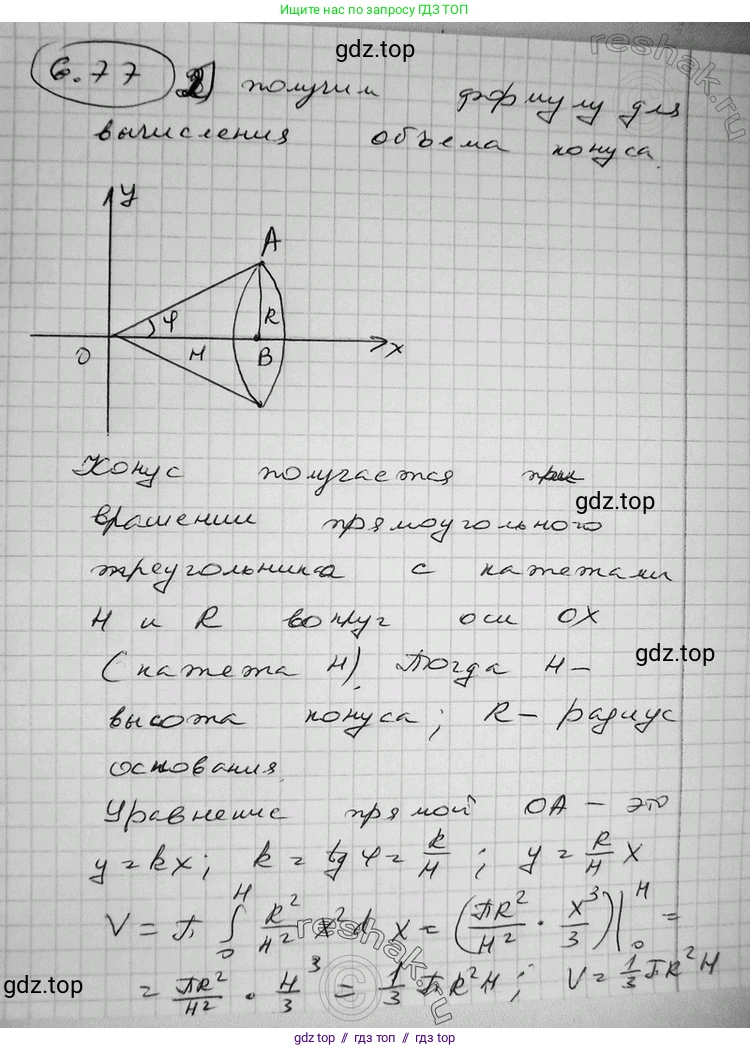 Ищите нас по запросу ГДЗ ТОП
gdz.top
reshak.ru
6.77 2) получим формулу для
вычисления объема конуса.
y
A
φ
R
O
H
B
x
Конус получается при
gdz.top
вращении прямоугольного
треугольника с катетами
H и R вокруг оси OX
gdz.top
(катета H). Тогда H –
высота конуса; R – радиус
основания.
Уравнение прямой OA – это
y = kx; k = tg φ = R/H; y = R/H x
V = π ∫₀ᴴ R²/H² x² dx = (πR²/H² · x³/3)|₀ᴴ =
reshak.ru
= πR²/H² · H³/3 = 1/3 πR²H; V = 1/3 πR²H
gdz.top
gdz.top // гдз топ // gdz.top